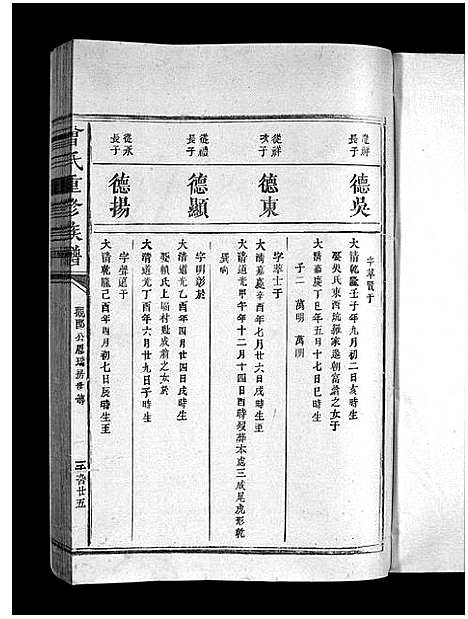 從鮮
長子
德吳
字華賢于
大清乾隆壬子年九月初二日亥時生
娶吳氏東西坑羅家邊朝富翁之女于
大清嘉慶丁巳年五月十七日巳時生
子二 萬明 萬朋
從鮮
次子
德東
字華士于
大清嘉慶辛酉年七月廿六日戌時生至
大清道光甲午年十二月十四日酉時歿葬本處三咸尾虎形乾
巽向
從禮
長子
德顯
字明彰於
大清道光乙酉年四月廿四日戌時生
娶賴氏上橫村 翁之女於
大清道光丁酉年六月廿九日子時生
從永
長子
德揚
字聲遠于
大清乾隆己酉年四月初七日辰時生至
曾氏重修族譜
公鳳瑞房世傳
廿五